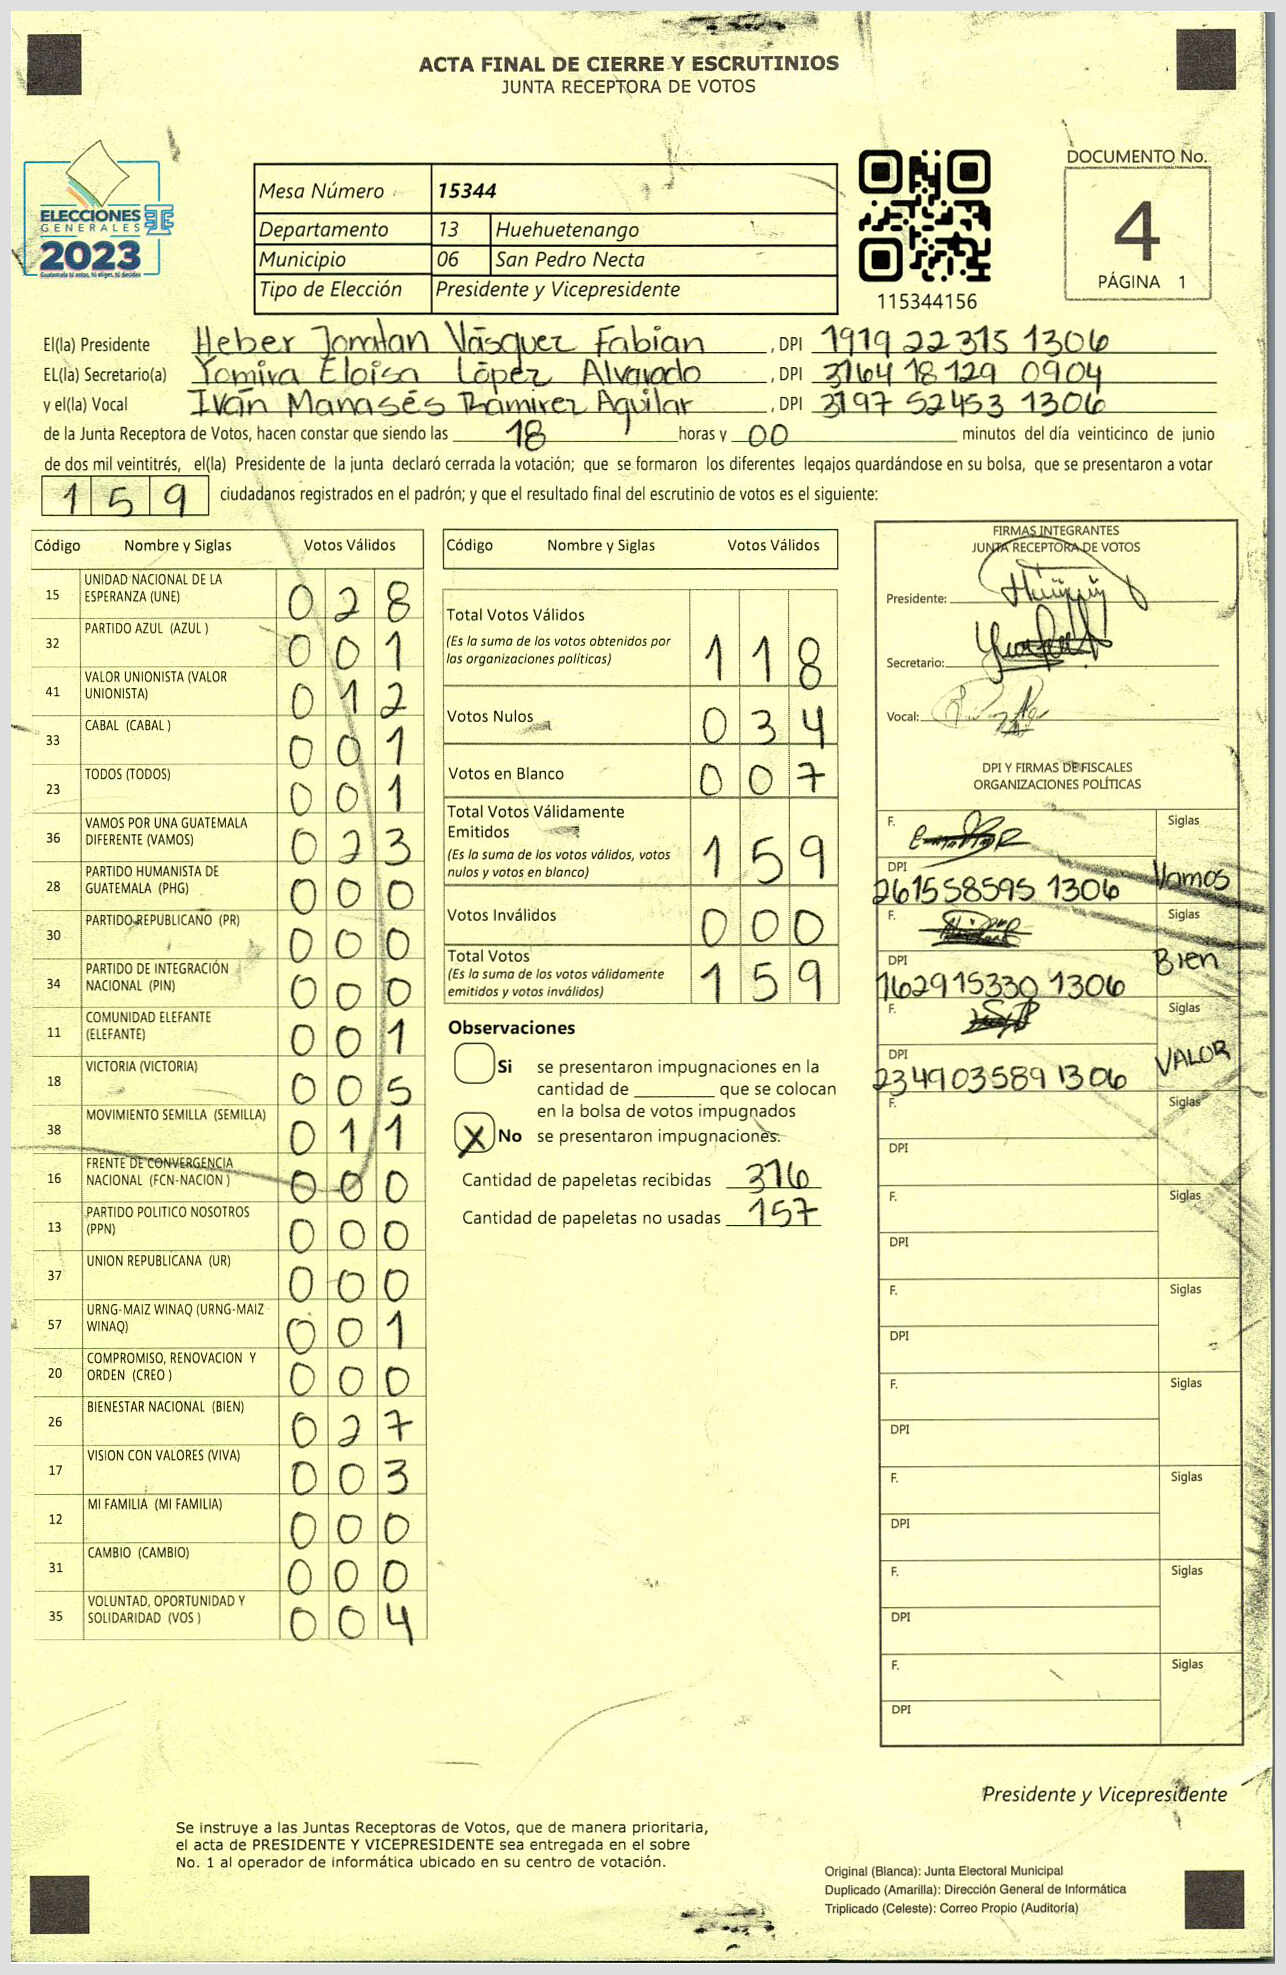 ACTA FINAL DE CIERRE Y ESCRUTINIOS
JUNTA RECEPTORA DE VOTOS
ELECCIONES
GENERALES
2023
Mesa Número 15344
Departamento 13 Huehuetenango
Municipio 06 San Pedro Necta
Tipo de Elección Presidente y Vicepresidente
115344156
DOCUMENTO No.
4
PÁGINA 1
El(la) Presidente Heber Jonatan Vásquez Fabian , DPI 1919 22315 1306
EL(la) Secretario(a) Yomira Eloisa López Alvarado , DPI 3164 18129 0904
y el(la) Vocal Iván Manasés Ramirez Aguilar , DPI 3197 52453 1306
de la Junta Receptora de Votos, hacen constar que siendo las 18 horas y 00 minutos del día veinticinco de junio
de dos mil veintitrés, el(la) Presidente de la junta declaró cerrada la votación; que se formaron los diferentes legajos guardándose en su bolsa, que se presentaron a votar
159 ciudadanos registrados en el padrón; y que el resultado final del escrutinio de votos es el siguiente:
Código Nombre y Siglas Votos Válidos
15 UNIDAD NACIONAL DE LA ESPERANZA (UNE) 028
32 PARTIDO AZUL (AZUL ) 001
41 VALOR UNIONISTA (VALOR UNIONISTA) 012
33 CABAL (CABAL ) 001
23 TODOS (TODOS) 001
36 VAMOS POR UNA GUATEMALA DIFERENTE (VAMOS) 023
28 PARTIDO HUMANISTA DE GUATEMALA (PHG) 000
30 PARTIDO REPUBLICANO (PR) 000
34 PARTIDO DE INTEGRACIÓN NACIONAL (PIN) 000
11 COMUNIDAD ELEFANTE (ELEFANTE) 001
18 VICTORIA (VICTORIA) 005
38 MOVIMIENTO SEMILLA (SEMILLA) 011
16 FRENTE DE CONVERGENCIA NACIONAL (FCN-NACION ) 000
13 PARTIDO POLITICO NOSOTROS (PPN) 000
37 UNION REPUBLICANA (UR) 000
57 URNG-MAIZ WINAQ (URNG-MAIZ WINAQ) 001
20 COMPROMISO, RENOVACION Y ORDEN (CREO ) 000
26 BIENESTAR NACIONAL (BIEN) 027
17 VISION CON VALORES (VIVA) 003
12 MI FAMILIA (MI FAMILIA) 000
31 CAMBIO (CAMBIO) 000
35 VOLUNTAD, OPORTUNIDAD Y SOLIDARIDAD (VOS ) 004
Código Nombre y Siglas Votos Válidos
Total Votos Válidos 118
(Es la suma de los votos obtenidos por
las organizaciones políticas)
Votos Nulos 034
Votos en Blanco 007
Total Votos Válidamente
Emitidos 159
(Es la suma de los votos válidos, votos
nulos y votos en blanco)
Votos Inválidos 000
Total Votos 159
(Es la suma de los votos válidamente
emitidos y votos inválidos)
Observaciones
Si se presentaron impugnaciones en la
cantidad de ________ que se colocan
en la bolsa de votos impugnados
X No se presentaron impugnaciones.
Cantidad de papeletas recibidas 316
Cantidad de papeletas no usadas 157
FIRMAS INTEGRANTES
JUNTA RECEPTORA DE VOTOS
Presidente:
Secretario:
Vocal:
DPI Y FIRMAS DE FISCALES
ORGANIZACIONES POLÍTICAS
F. Siglas
DPI
261558595 1306 Vamos
F. Siglas
DPI
162915330 1306 Bien
F. Siglas
DPI
234903589 1306 VALOR
F. Siglas
DPI
F. Siglas
DPI
F. Siglas
DPI
F. Siglas
DPI
F. Siglas
DPI
F. Siglas
DPI
F. Siglas
DPI
Presidente y Vicepresidente
Se instruye a las Juntas Receptoras de Votos, que de manera prioritaria,
el acta de PRESIDENTE Y VICEPRESIDENTE sea entregada en el sobre
No. 1 al operador de informática ubicado en su centro de votación.
Original (Blanca): Junta Electoral Municipal
Duplicado (Amarilla): Dirección General de Informática
Triplicado (Celeste): Correo Propio (Auditoría)